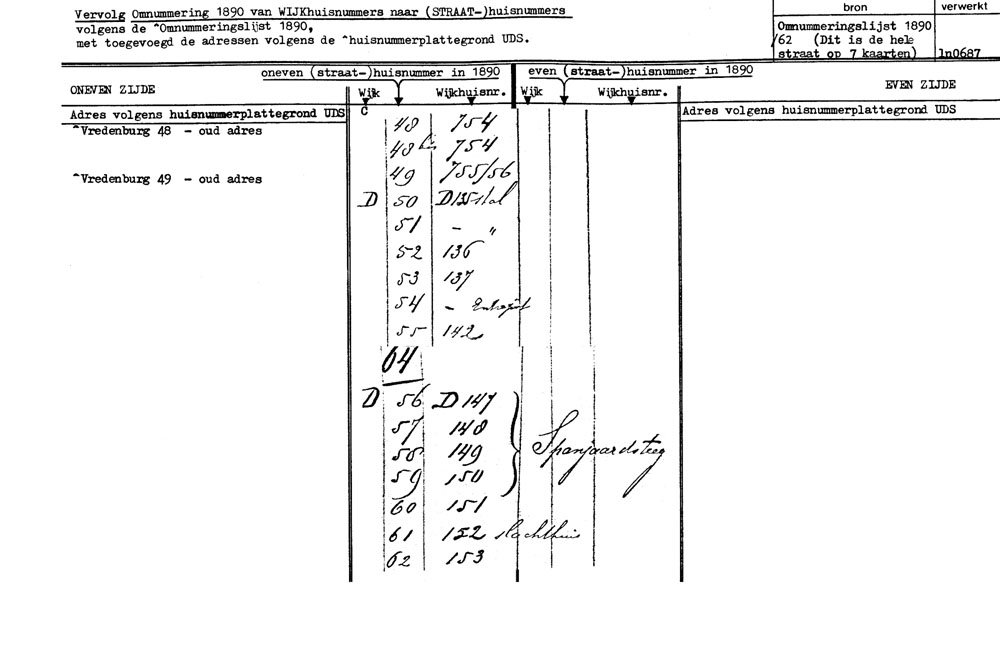 Vervolg Omnummering 1890 van WIJKhuisnummers naar (STRAAT-)huisnummers
volgens de ^Omnummeringslijst 1890,
met toegevoegd de adressen volgens de ^huisnummerplattegrond UDS.
bron verwerkt
Omnummeringslijst 1890
/62 (Dit is de hele
straat op 7 kaarten) ln0687
oneven (straat-)huisnummer in 1890 even (straat-)huisnummer in 1890
ONEVEN ZIJDE Wijk Wijkhuisnr. Wijk Wijkhuisnr. EVEN ZIJDE
Adres volgens huisnummerplattegrond UDS C Adres volgens huisnummerplattegrond UDS
48 754
^Vredenburg 48 - oud adres
48 bis 754
49 755/56
^Vredenburg 49 - oud adres
D 50 D135 stal
51 - "
52 136
53 137
54 - Entrepôt
55 142
64
D 56 D 147
57 148
58 149 Spanjaardsteeg
59 150
60 151
61 152 slachthuis
62 153